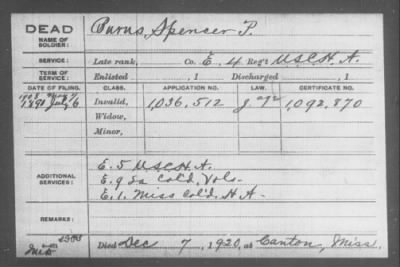 DEAD
NAME OF SOLDIER:
Burns, Spencer P.
SERVICE:
Late rank, Co. E, 4 Reg't U.S.C.H.A.
TERM OF SERVICE:
Enlisted , 1 Discharged , 1
DATE OF FILING. CLASS. APPLICATION NO. LAW. CERTIFICATE NO.
1891 July 6 Invalid, 1,036,512 1,092,870
Widow,
Minor,
ADDITIONAL SERVICES:
E. 5 U.S.C.H.A.
E. 9 La Col'd. Vols.
E. 1. Miss Col'd. H A.
REMARKS:
Died Dec 7, 1920, at Canton, Miss.